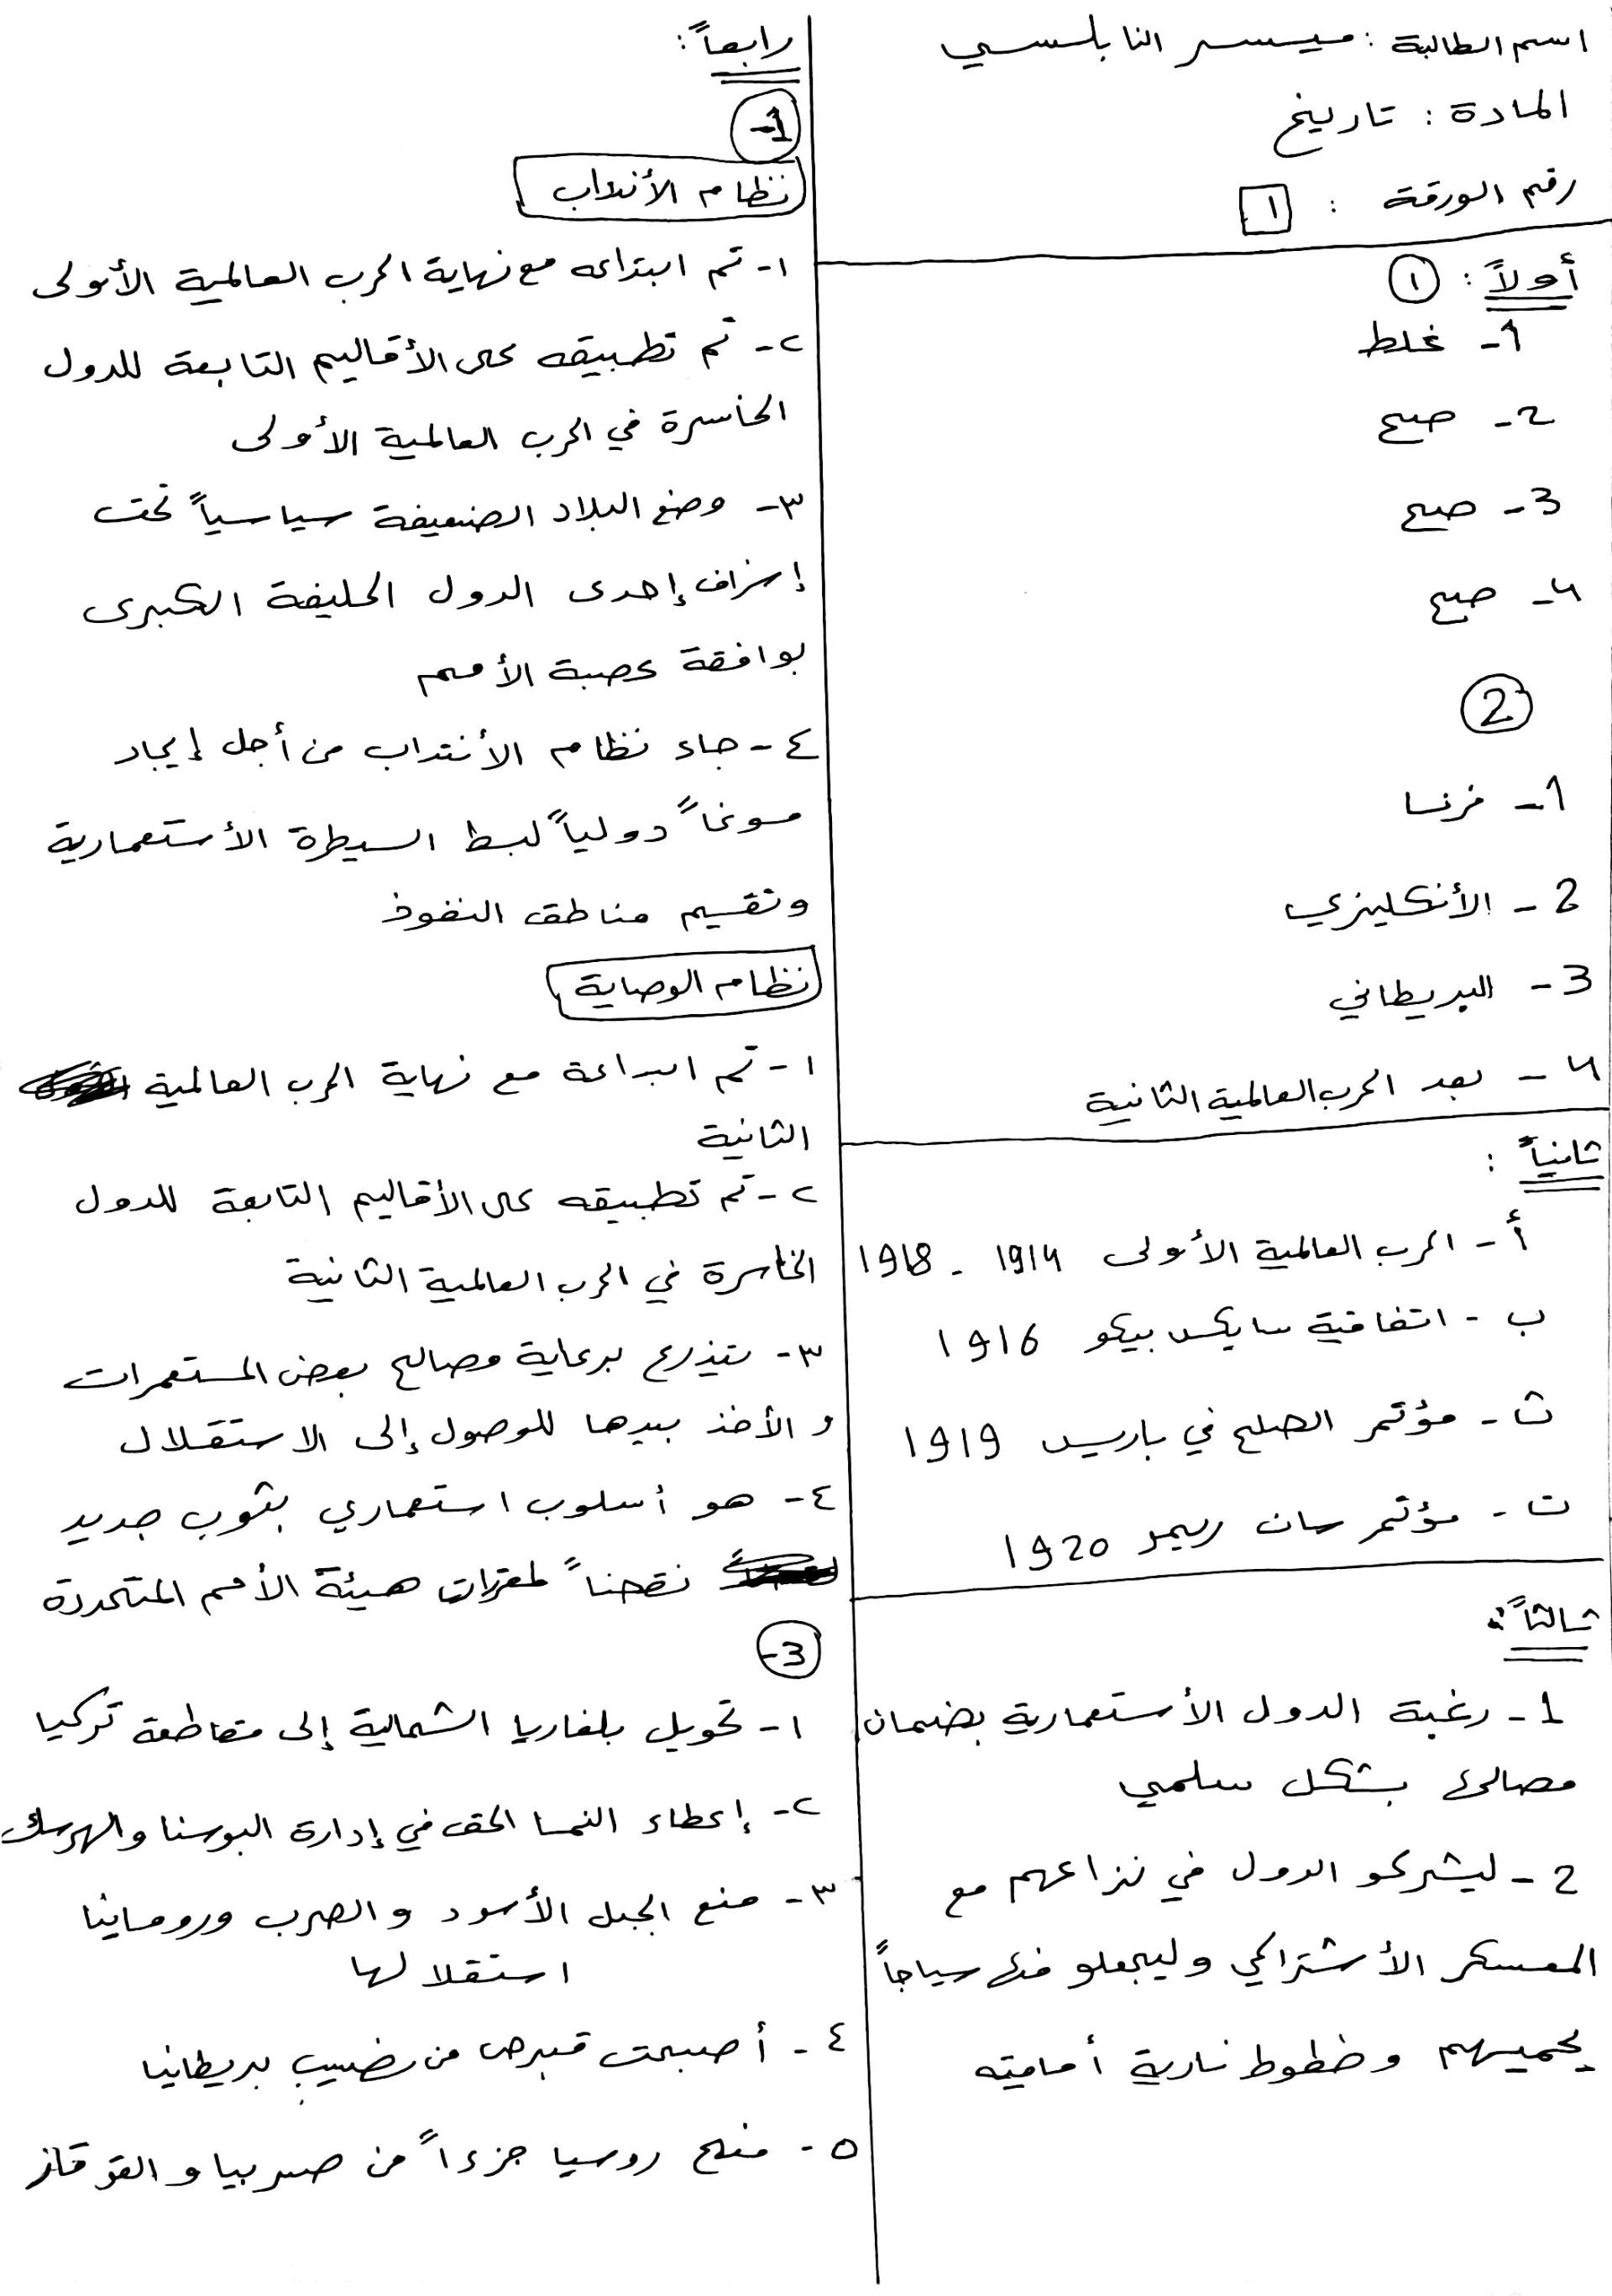 اسم الطالبة : ميسر النابلسي
المادة : تاريخ
رقم الورقة : ١
أولاً : ١
1- غلط
2- صح
3- صح
4- صح
2
1- فرنسا
2- الأنكليزي
3- البريطاني
4- بعد الحرب العالمية الثانية
ثانياً :
أ- الحرب العالمية الأولى 1914 - 1918
ب- اتفاقية سايكس بيكو 1916
ث- مؤتمر الصلح في باريس 1919
ت- مؤتمر سان ريمو 1920
ثالثاً :
1- رغبة الدول الأستعمارية بضمان
مصالحها بشكل سلمي
2- ليشركو الدول في نزاعهم مع
المعسكر الأشتراكي وليجعلو منها سياجاً
يحميهم وخطوط نارية أماميته
رابعاً :
1-
نظام الأنداب
١- تم ابتداعه مع نهاية الحرب العالمية الأولى
٢- تم تطبيقه على الأقاليم التابعة للدول
الخاسرة في الحرب العالمية الأولى
٣- وضع البلاد الضعيفة سياسياً تحت
إشراف إحدى الدول الحليفة الكبرى
بوافقة عصبة الأمم
٤- جاء نظام الأنتداب من أجل إيجاد
مسوغاً دولياً لبسط السيطرة الأستعمارية
وتقسيم مناطق النفوذ
نظام الوصاية
١- تم ابداعة مع نهاية الحرب العالمية
الثانية
٢- تم تطبيقه على الأقاليم التابعة للدول
الخاسرة في الحرب العالمية الثانية
٣- يتذرع برعاية مصالح بعض المستعمرات
و الأخذ بيدها للوصول إلى الاستقلال
٤- هو أسلوب استعماري بثوب جديد
نقضاً لمقررات هيئة الأمم المتحددة
3-
١- تحويل بلغاريا الشمالية إلى مقاطعة تركيا
٢- إعطاء النمسا الحق في إدارة البوسنا والهرسك
٣- منع الجبل الأسود والصرب ورومانيا
استقلالها
٤- أصبحت قبرص من نصيب بريطانيا
٥- منح روسيا جزءاً من صربيا و القوقاز